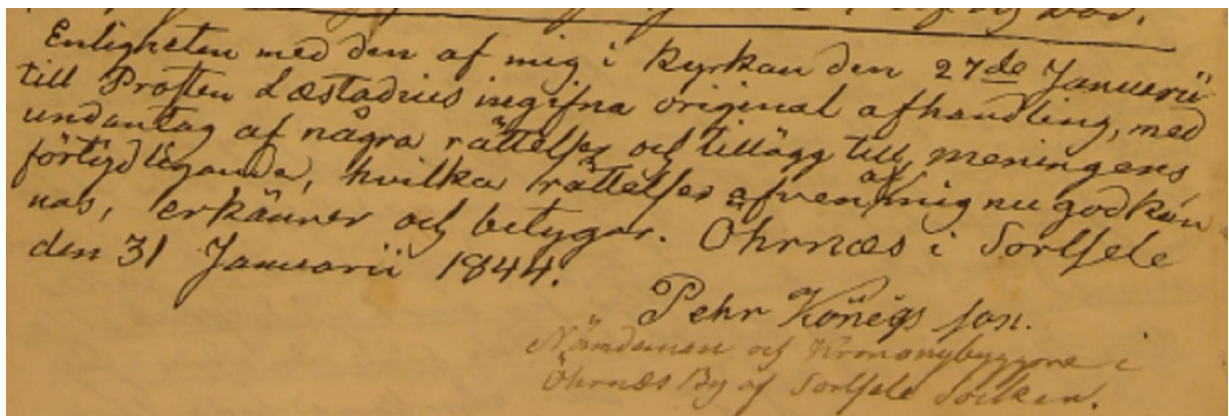 Enligheten med den af mig i Kyrkan den 27de Januarii
till Prosten Læstadius ingifna original afhandling, med
undantag af några rättelser och tillägg till meningens
förtydligande, hvilka rättelser äfven af mig nu godkän-
nas, erkänner och betygar. Öhrnæs i Sorssele
den 31 Januarii 1844.
Pehr Königs son.
Nämdeman och Krononybyggare i
Öhrnæs By af Sorssele Socken.